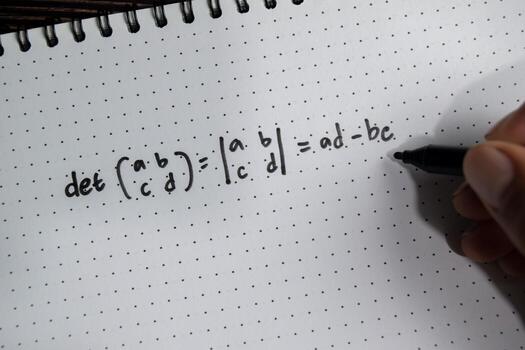 det (a b c d) = |a b c d| = ad - bc